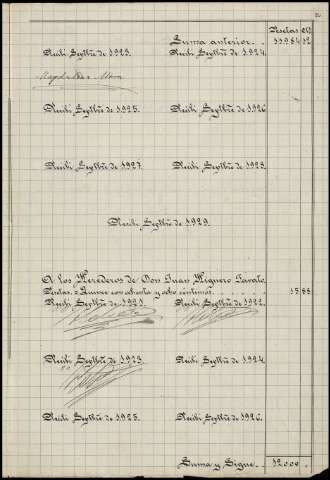 Pesetas Cts
Suma anterior . . 11984 12
Recibí Septbre de 1923. Recibí Septbre de 1924.
Recibí Septbre de 1925. Recibí Septbre de 1926
Recibí Septbre de 1927. Recibí Septbre de 1928
Recibí Septbre de 1929.
A los Herederos de Don Juan
Pesetas = Quince con ochenta y ocho céntimos. 15 88
Recibí Septbre de 1921. Recibí Septbre de 1922.
Recibí Septbre de 1923. Recibí Septbre de 1924
Recibí Septbre de 1925. Recibí Septbre de 1926.
Suma y Sigue. 12000 .